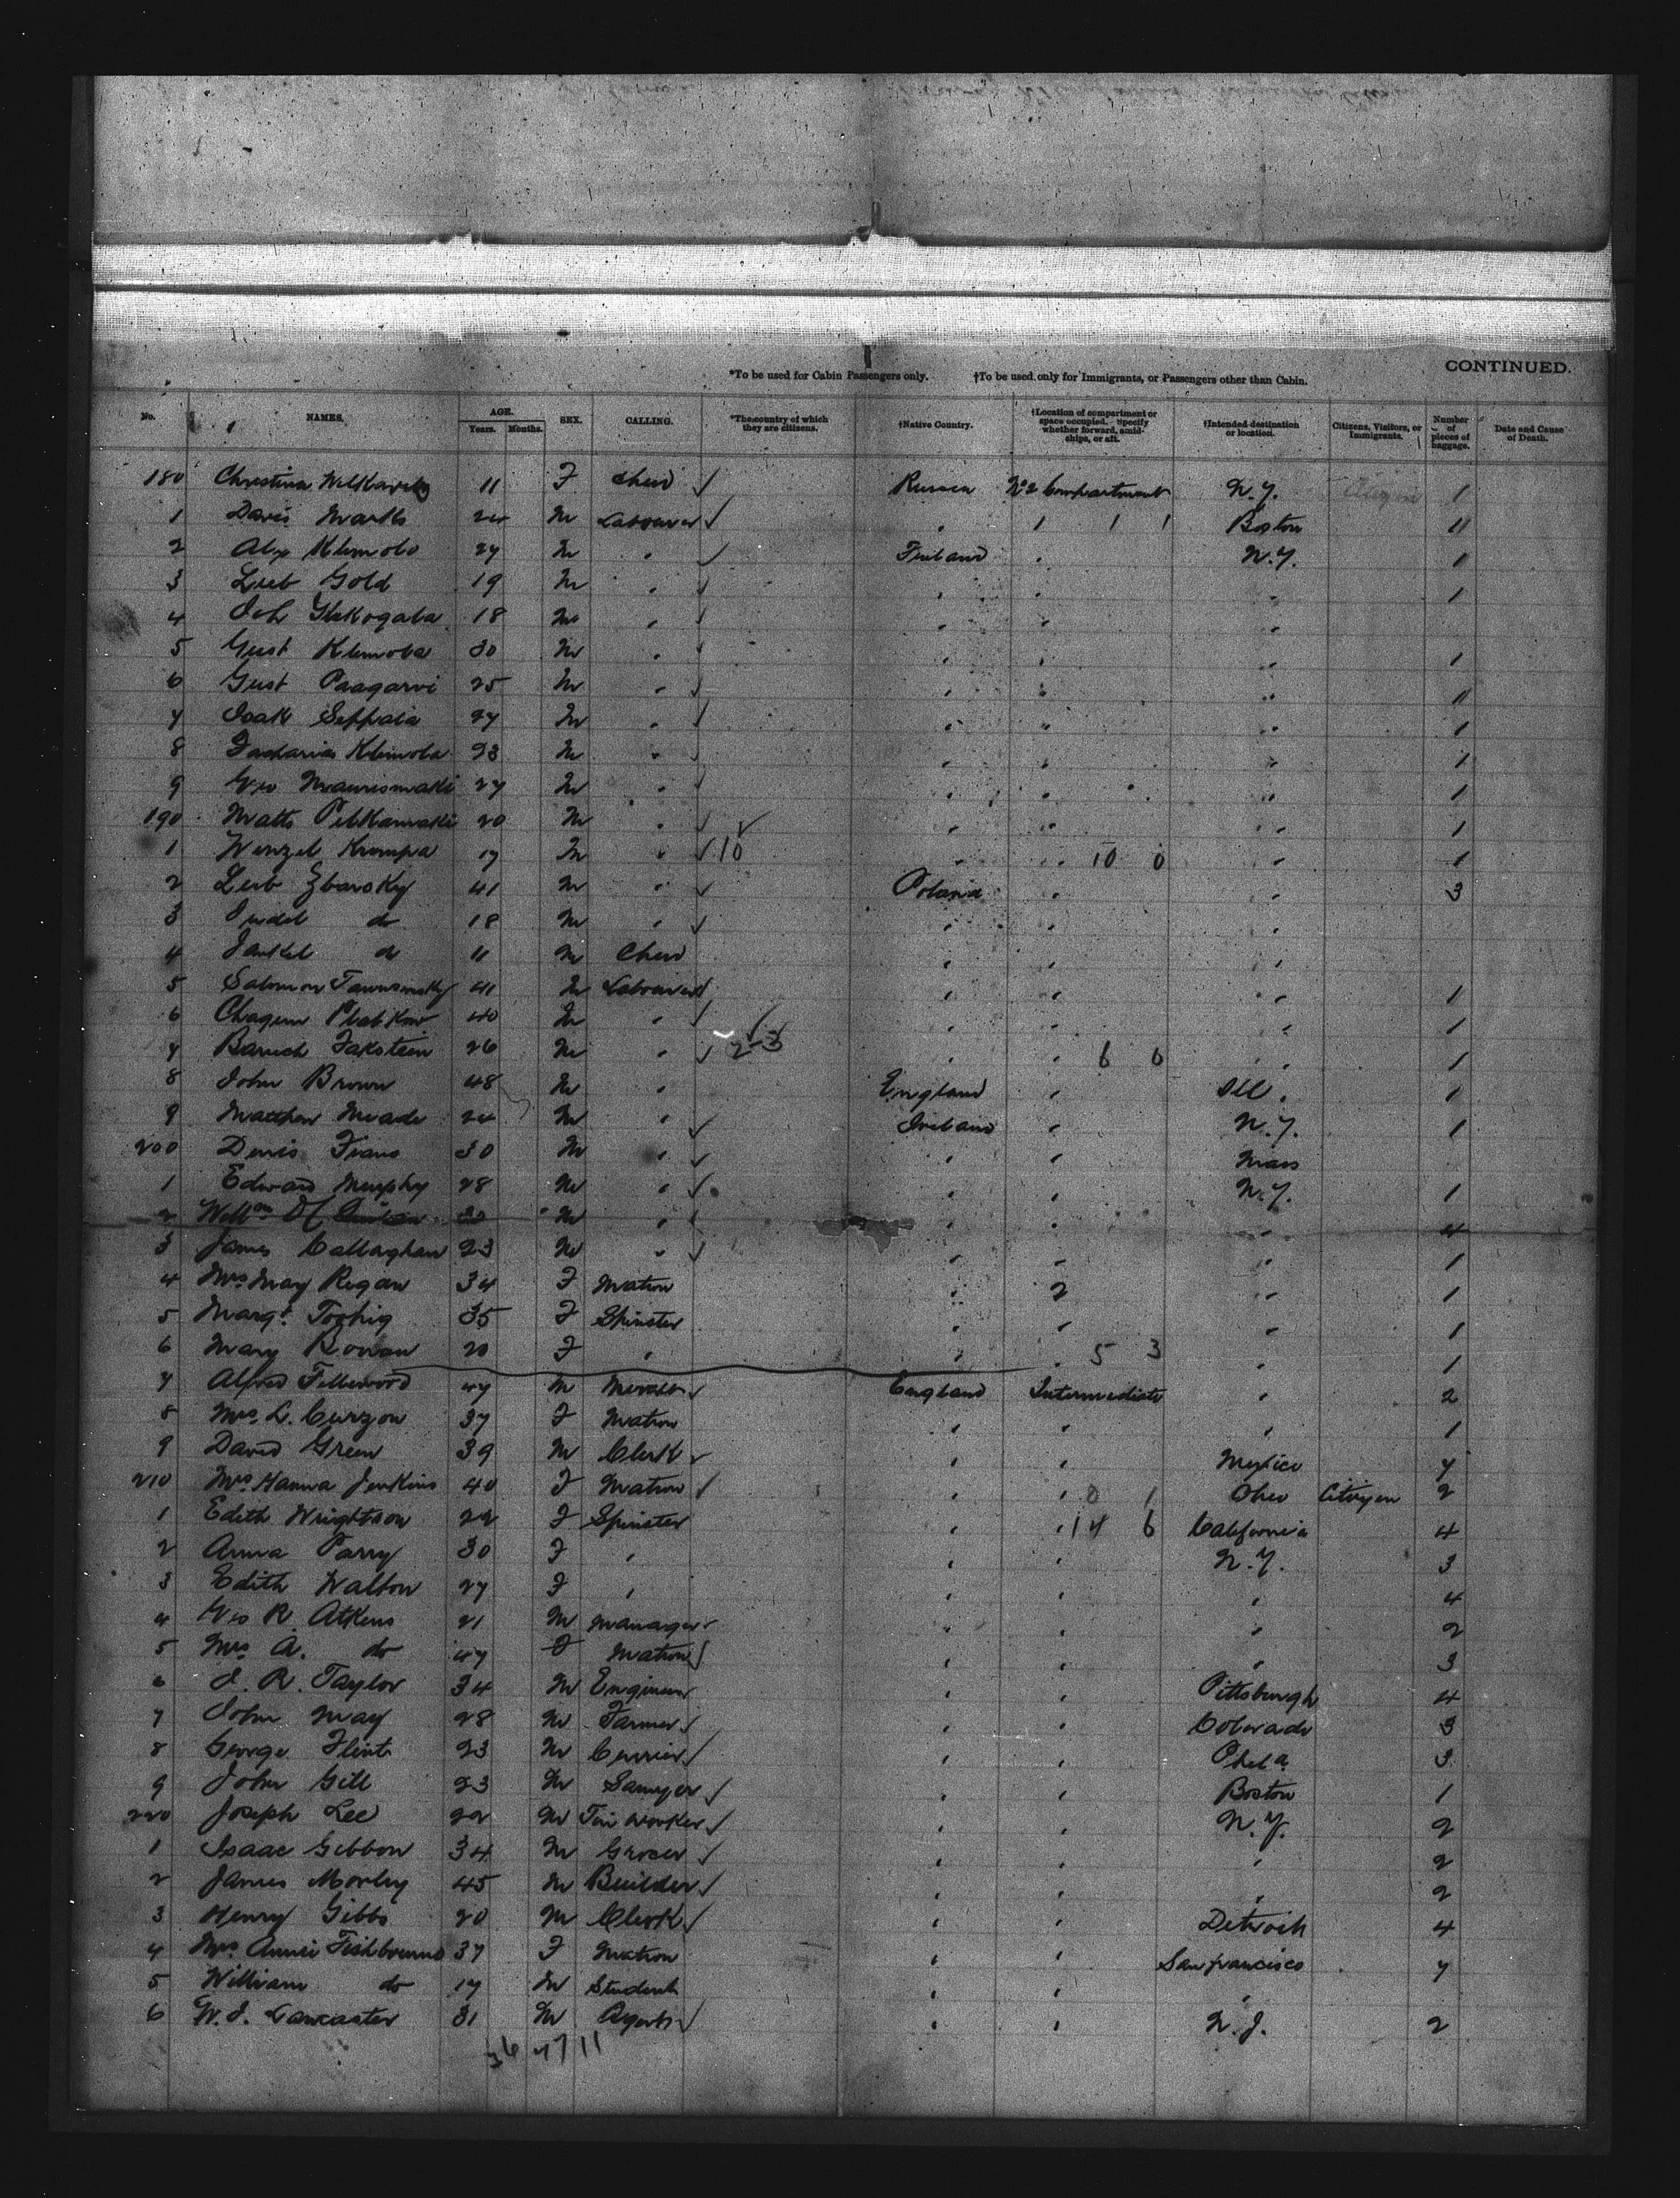 CONTINUED.
*To be used for Cabin Passengers only. †To be used only for Immigrants, or Passengers other than Cabin.
No. NAMES. AGE. Years. Months. SEX. CALLING. *The country of which they are citizens. †Native Country. †Location of compartment or space occupied. Specify whether forward, amidships, or aft. †Intended destination or location. Citizens, Visitors, or Immigrants. Number of pieces of baggage. Date and Cause of Death.
180 Christina 11 F Russia No 2 Compartment N.Y. Citizen 1
1 Davis Marks 24 M Labourer " " " " Boston
2 Alex Klemola 27 M " Finland " N.Y. 1
3 Leib Gold 19 M " " " " 1
4 Joh 18 M " " " "
5 Gust Klemola 30 M " " " " 1
6 Gust Paagarvi 25 M " " " "
7 Isak Seppala 27 M " " " " 1
8 Zacharias Klemola 23 M " " " " 1
9 Geo 27 M " " " " 1
190 Matts 20 M " " " " 1
1 Wenzel Krumpa 17 M " 10 " " 10 0 " 1
2 Leib Zbarsky 41 M " Poland " " 3
3 Judel do 18 M " " " "
4 Jankel do 11 M " " "
5 Salomon 41 M Labourer " " " 1
6 40 M " " " " 1
7 Baruch Jakstein 26 M " 2-3 " " 6 0 " 1
8 John Brown 48 M " England " Ill. 1
9 Matthew Meade 24 M " Ireland " N.Y. 1
200 Denis 30 M " " " Mass
1 Edward Murphy 28 M " " " N.Y. 1
2 Willm M " " " " 4
3 James Callaghan 23 M " " " " 1
4 Mrs May Regan 34 F Matron " 2 " 1
5 Margt. Toohig 35 F Spinster " " " 1
6 Mary Rowan 20 F " " " 5 3 " 1
7 Alfred 47 M England Intermediate " 2
8 Mrs L. Curzon 37 F Matron " " " 1
9 David Green 39 M Clerk " " Mexico 7
210 Mrs Hanna Jenkins 40 F Matron " " 0 1 Ohio Citizen 2
1 Edith Wrightson 22 F Spinster " " 14 6 California 4
2 Anna Parry 30 F " " " N.Y. 3
3 Edith Walton 27 F " " " " 4
4 Geo R. Atkens 21 M Manager " " " 2
5 Mrs A. do 47 F Matron " " " 3
6 J. R. Taylor 34 M Engineer " " Pittsburgh 4
7 John May 28 M Farmer " " Colorado 3
8 George Flint 23 M Currier " " Phila 3
9 John Gill 23 M Sawyer " " Boston 1
220 Joseph Lee 22 M Tin Worker " " N.Y. 2
1 Isaac Gibbon 34 M Grocer " " " 2
2 James Morley 45 M Builder " " " 2
3 Henry Gibbs 20 M Clerk " " Detroit 4
4 Mrs Annie Fishbourne 37 F Matron " " San francisco 7
5 William do 17 M Student " " "
6 W. J. Lancaster 31 M Agent " " N.J. 2
36 4 7 11